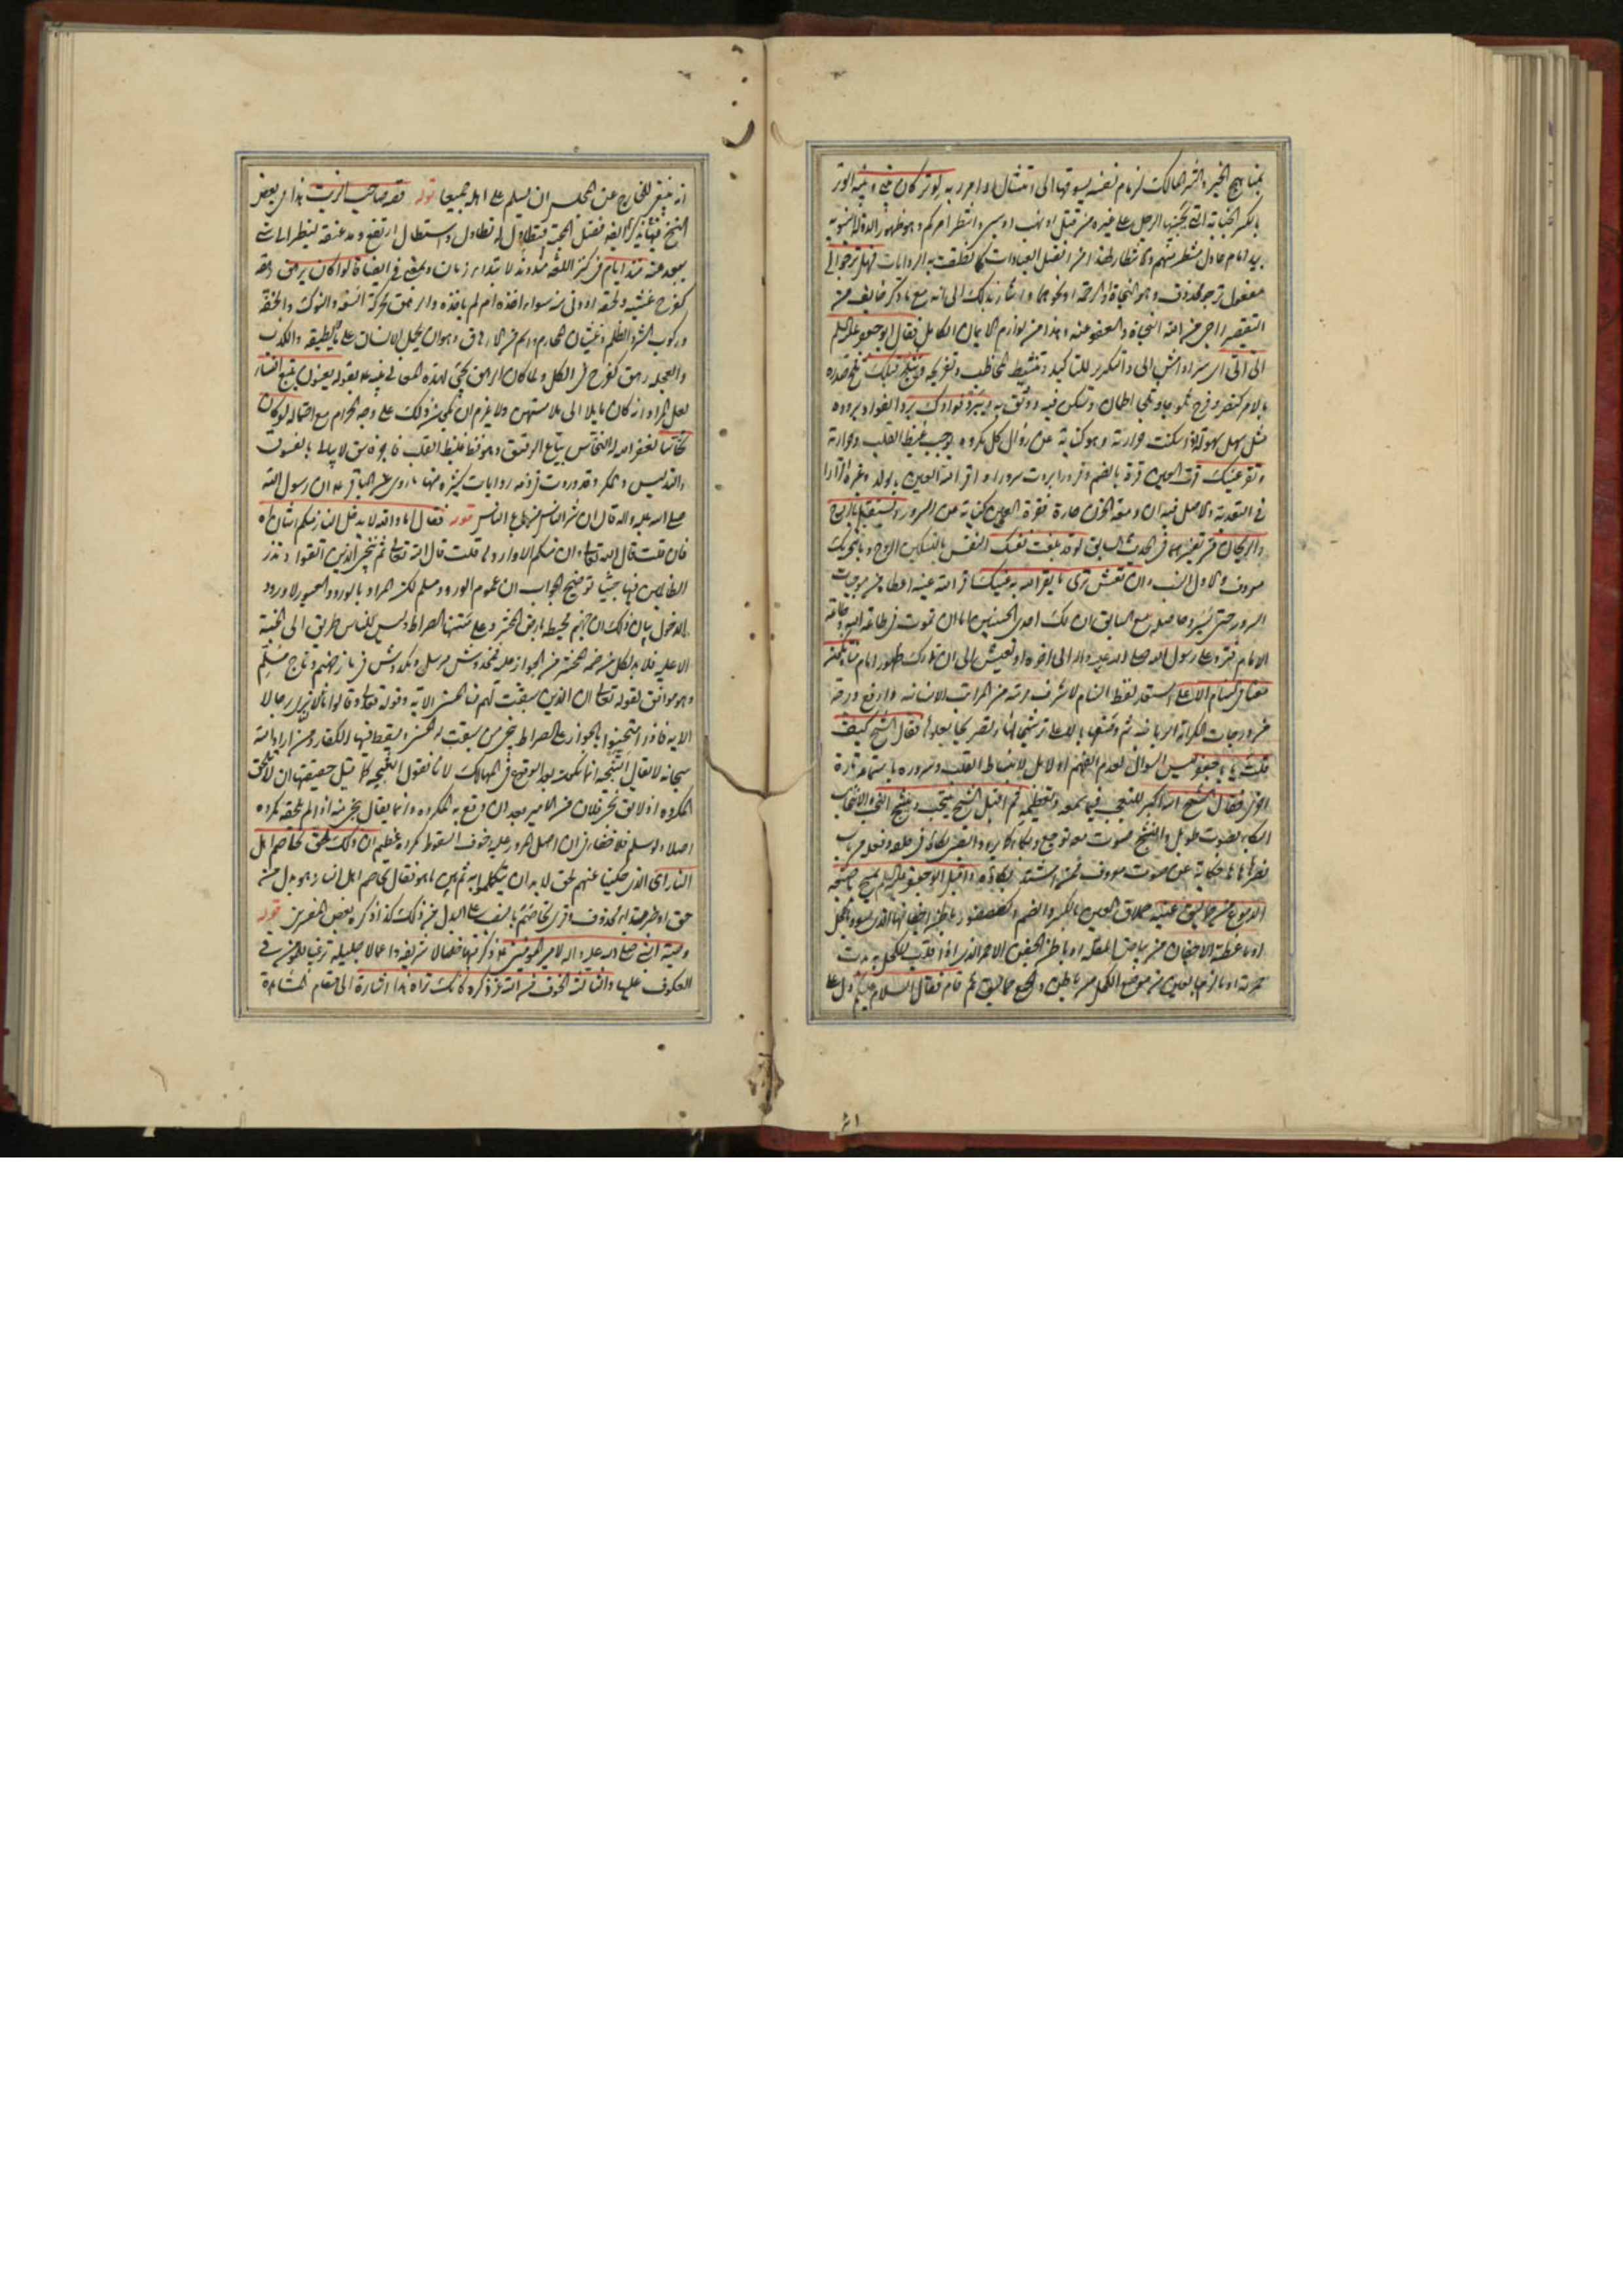 بمناهج الخير والشر المالك لزمام نفسه يسوقها الى امتثال اوامر ربه لو تر كان بينه وبينه الوتر
بالكسر الجناية التي يجنيها الرجل على غيره من قتل او نهب او سبي وانتظر امركم وهو ظهور الدولة
بيد امام عادل منتظر منهم والانتظار لهذا من افضل العبادات كما نطقت به الروايات فهل ترجو لي
مفعول ترجو محذوف وهو النجاة او الرحمة او نحوهما واشار بذلك الى انه مع ما ذكر خايف من
التقصير راجي من الله النجاة والعفو عنه وهذا من لوازم الايمان الكامل فقال ابو جعفر عليه السلم
الي الي اي سر او امش الي والتكرير للتاكيد وتنشيط المخاطب وتفريحه ويثلج قلبك ثلج صدره
بالامر كنصر وفرح اطمأن وسكن فيه ووثق به ويبرد فؤادك برد الفؤاد بروده
مثل سهل سهولة اذا سكنت حرارته وهو كناية عن زوال كل مكروه يوجب غيظ القلب وحرارته
وتقر عينك قرت العين قرة بالضم وقرورا بردت سرورا واقر الله العين بالولد وغيره اقرارا
في التعدية والاصل فيه ان دمعة الحزن حارة فقرة العين كناية عن السرور وتستقبل بالروح
والريحان مر تفسيرهما في الحديث السابق لو قد بلغت نفسك النفس بالتسكين الروح وبالتحريك
معروف والاول انسب وان تعش ترى ما يقر الله به عينك اقر الله عينه اعطاه من موجبات
السرور حتى يسر وحاصله مع السابق ان لك احدى الحسنيين اما ان تموت في طاعة الله وطاعة
الامام فترد على رسول الله صلى الله عليه واله الى اخره او تعيش الى ان تدرك ظهور امام فتكون
معنا في السنام الاعلى استعار لفظ السنام لاشرف مرتبة من المراتب الانسانية وارفع درجة
من درجات الكرامة الربانية ثم وصفها بالاعلى ترشيحا لها وتصريحا بعلوها فقال الشيخ كيف
قلت يا ابا جعفر ليس السؤال لعدم الفهم اولا بل لانبساط القلب وسروره باستماعه تارة
اخرى فقال الشيخ الله اكبر للتعجب فيما سمعه وتعظيمه ثم اقبل الشيخ ينتحب وينشج النحب والانتحاب
البكاء بصوت طويل والنشج صوت معه توجع وبكاء كما يردد الصبي بكائه في حلقه وفعله من باب
ضرب هاها حكاية عن صوت معروف لمن اشتد بكاؤه واقبل ابو جعفر عليه السلم يمسح باصبعه
الدموع من حماليق عينيه حملاق العين بالكسر والضم وكعصفور باطن اجفانها الذي يسود بالكحل
او ما غطته الاجفان من بياض المقلة او باطن الجفن الاحمر الذي اذا قلب للكحل بدت
حمرته او ما لزم بالعين من موضع الكحل من باطن والجمع حماليق ثم قام فقال السلام عليكم دل على
انه ينبغي للخارج عن المجلس ان يسلم على اهله جميعا قوله قصة صاحب الزيت هذا في بعض
النسخ فتطاول له تطاول واستطال ارتفع ومد عنقه لينظر الى شئ
يبعد عنه منذ ايام في كنز اللغة منذ ابتداء زمان وبمعنى في ايضا قالوا كان يرهق رهقه
كفرح غشيه ولحقه او دنى منه سواء اخذه ام لم ياخذه والرهق محركة السفه والنوك والخفة
وركوب الشر والظلم وغشيان المحارم واسم من الارهاق وهو ان يحمل الانسان على ما لا يطيقه والكذب
والعجلة رهق كفرح في الكل ولما كان الرهق يجئ لهذه المعاني فسره بقوله يعنون يتبع النساء
لعل المراد انه كان مايلا الى ملامستهن ولا يلزم ان يكون ذلك على وجه الحرام مع احتماله لو كان
نخاسا لغفر الله له النخاس بياع الرقيق وهو فظ غليظ القلب فاجر فاسق لا يبالي بالفسوق
والتدليس والمكر وقد وردت في ذمه روايات كثيرة منها ما روي عن الباقر ع ان رسول الله
صلى الله عليه واله قال ان شر الناس من باع الناس قوله فقال اما والله لا يدخل النار منكم اثنان اه
فان قلت قال الله تعالى وان منكم الا واردها قلت قال الله تعالى ثم ننجي الذين اتقوا ونذر
الظالمين فيها جثيا توضيح الجواب ان عموم الورود مسلم لكن المراد بالورود العبور لا ورود
الدخول بيان ذلك ان جهنم محيط بارض المحشر وعلى متنها الصراط وليس للناس طريق الى الجنة
الا عليه فلا بد لكل من ضمه المحشر من الجواز عليه فمخدوش مرسل ومكدوش في نار جهنم وناج مسلم
وهو موافق لقوله تعالى ان الذين سبقت لهم منا الحسنى الاية وقوله تعالى وقالوا ما لنا لا نرى رجالا
الاية فاذا امتحنوا بالجواز على الصراط نجى من سبقت له الحسنى ويسقط فيها الكفار ومن اراد الله
سبحانه لا يقال النتيجة انما تكون بعد الوقوع في المهالك لانا نقول النتيجة كما قيل حقيقتها ان لا يلحق
المكروه اذ لا يق نجى فلان من الامير بعد ان وقع به المكروه وانما يقال نجى منه اذا لم يلحقه مكروه
اصلا ولو سلم فلا خفاء في ان اصل المرور عليه وخوف السقوط مكروه عظيم ان ذلك لحق تخاصم اهل
النار اي الذي حكينا عنهم لحق لا بد ان يتكلموا به ثم بين ما هو فقال تخاصم اهل النار وهو بدل من
حق او خبر مبتداء محذوف وقرئ تخاصم بالنصب على البدل من ذلك كذا ذكره بعض المفسرين قوله
وصية النبي صلى الله عليه واله لامير المؤمنين ع ذكر فيها خصالا شريفة واعمالا جليلة ترغيبا للمؤمن في
العكوف عليها والثالثة الخوف من الله عز ذكره كانك تراه هذا اشارة الى مقام المشاهدة